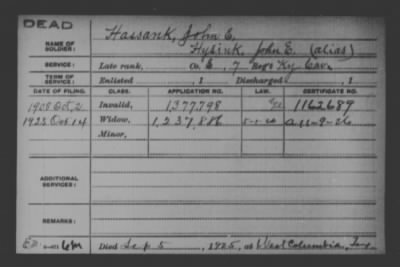 DEAD
NAME OF SOLDIER: Hassank, John E.
Hysink, John E. (alias)
Late rank, Co. E, 7 Regt Ky Cav.
TERM OF SERVICE: Enlisted , 1 Discharged , 1
DATE OF FILING. CLASS. APPLICATION NO. LAW. CERTIFICATE NO.
1908 Oct, 2 Invalid, 1,377,798 1162689
1925 Oct 14 Widow, 1,237,886 5-1-20 a 11-9-26
Minor,
ADDITIONAL SERVICES:
REMARKS:
Died Sep 5, 1925, at West Columbia, Tex.